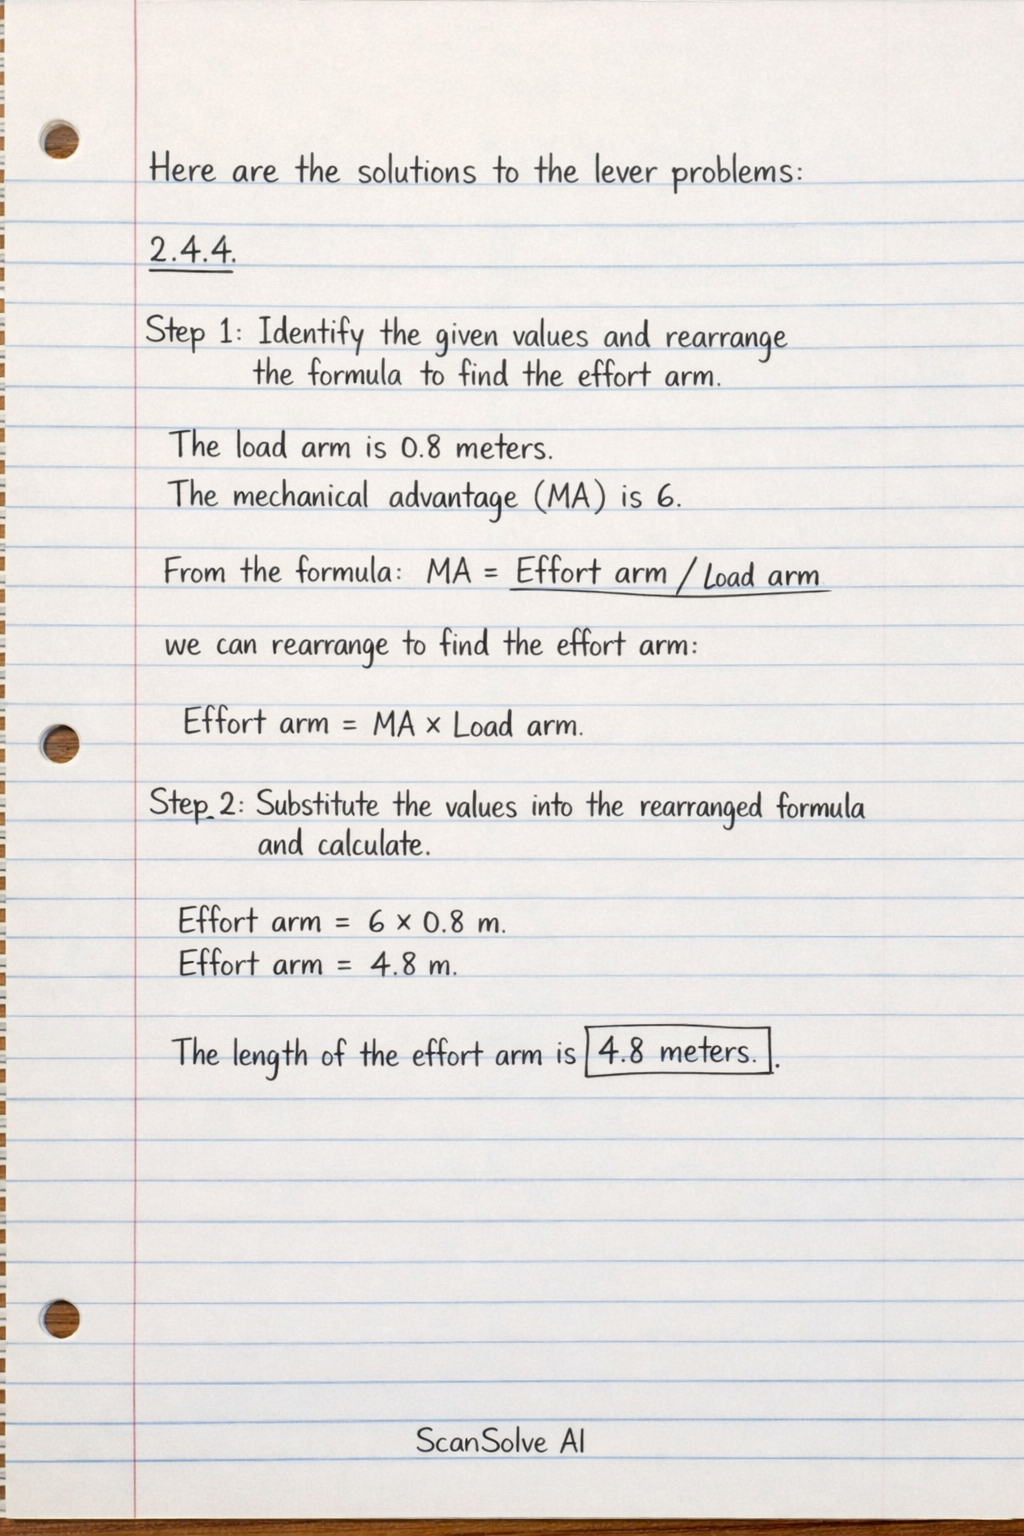 Here are the solutions to the lever problems:
2.4.4.
Step 1: Identify the given values and rearrange
the formula to find the effort arm.
The load arm is 0.8 meters.
The mechanical advantage (MA) is 6.
From the formula: MA = Effort arm / Load arm
we can rearrange to find the effort arm:
Effort arm = MA × Load arm.
Step 2: Substitute the values into the rearranged formula
and calculate.
Effort arm = 6 × 0.8 m.
Effort arm = 4.8 m.
The length of the effort arm is 4.8 meters..
ScanSolve AI